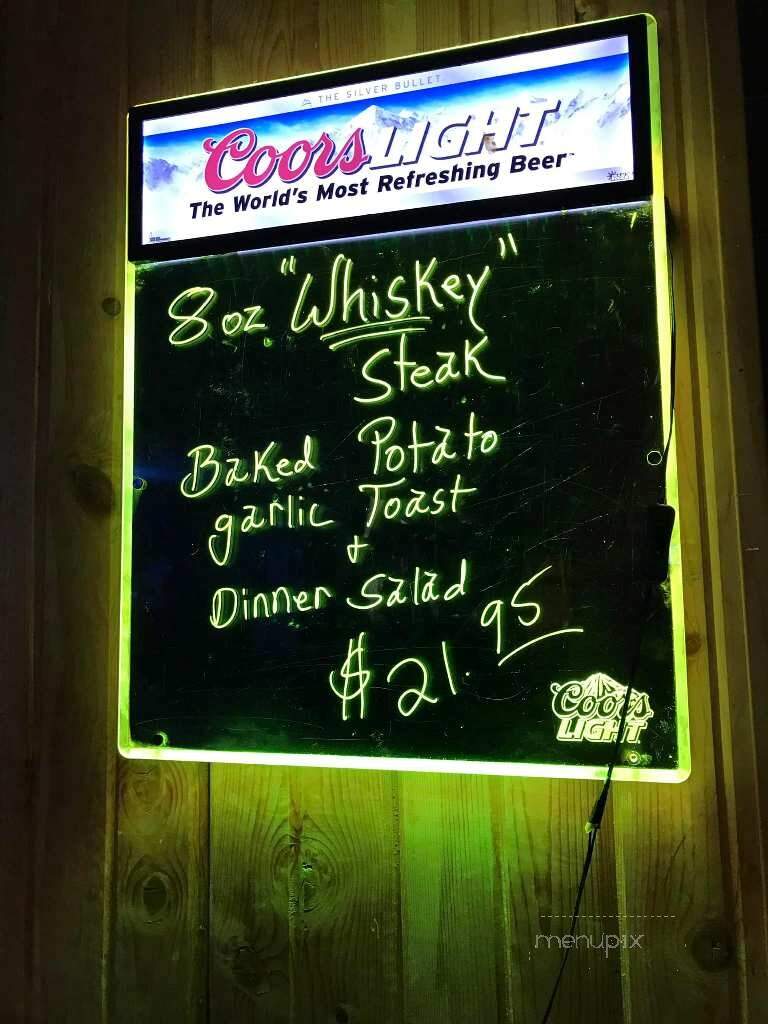 THE SILVER BULLET
Coors LIGHT
The World's Most Refreshing Beer
8 oz "Whiskey"
Steak
Baked Potato
garlic Toast
+
Dinner Salad
$21.95
Coors
LIGHT
menupix